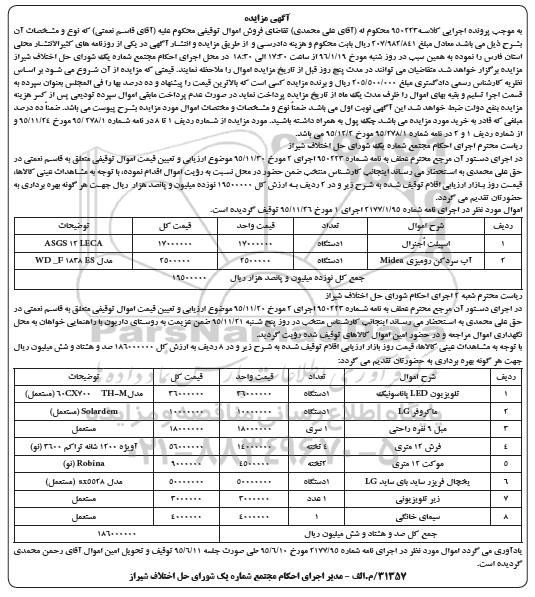 آگهی مزایده
به موجب پرونده اجرایی کلاسه ۹۵۰۲۲۳ محکوم له (آقای علی محمدی) تقاضای فروش اموال توقیفی محکوم علیه (آقای قاسم نعمتی) که نوع و مشخصات آن
بشرح ذیل می باشد معادل مبلغ ۲۰۷/۹۸۲/۸۴۱ ریال بابت محکوم و هزینه دادرسی و از طریق مزایده و انتشار آگهی در یکی از روزنامه های کثیرالانتشار محلی
استان فارس را نموده به همین سبب در روز شنبه مورخ ۹۶/۱/۱۹ از ساعت ۱۷:۳۰ الی ۱۸:۳۰ در محل اجرای احکام مجتمع شماره یک شورای حل اختلاف شیراز
مزایده برگزار خواهد شد متقاضیان می توانند در مدت پنج روز قبل از تاریخ مزایده اموال را ملاحظه نمایند. قیمتی که مزایده از آن شروع می شود بر اساس
نظریه کارشناس رسمی دادگستری مبلغ ۲۰۵/۵۰۰/۰۰۰ ریال و برنده مزایده کسی است که بالاترین قیمت را پیشنهاد و ده درصد بها را فی المجلس بعنوان سپرده به
قسمت اجرا تسلیم و بقیه بهای اموال را ظرف مدت یک ماه از تاریخ مزایده پرداخت نماید در صورت عدم پرداخت مابقی اموال سپرده تودیعی پس از کسر هزینه
مزایده بنفع دولت ضبط خواهد شد. این آگهی نوبت اول می باشد ضمناً نوع و مشخصات و مختصات اموال مورد مزایده بشرح پیوست می باشد. ضمناً ده درصد
مبلغی که قادر به خرید مورد مزایده می باشد چک پول به همراه داشته باشید. مورد مزایده از شماره ردیف ۱ تا ۸ در نامه شماره ۹۵/۲۷۸/۱ مورخ ۹۵/۱۱/۲۴ و
از شماره ردیف ۱ و ۲ در نامه شماره ۹۵/۲۷۸/۱ مورخ ۹۵/۱۲/۲ می باشد.
ریاست محترم اجرای احکام مجتمع شماره یک شورای حل اختلاف شیراز
در اجرای دستور آن مرجع محترم عطف به نامه شماره ۹۵۰۲۲۳ اجرای ۲ مورخ ۹۵/۱۱/۳۰ موضوع ارزیابی و تعیین قیمت اموال توقیفی متعلق به قاسم نعمتی در
حق علی محمدی به استحضار می رساند اینجانب کارشناس منتخب ضمن حضور در محل نسبت به رؤیت اموال اقدام نموده، با توجه به مشاهدات عینی کالاها،
قیمت روز بازار ارزیابی اقلام توقیف شده به شرح زیر و در ۲ ردیف به ارزش کل ۱۹۵۰۰۰۰۰ نوزده میلیون و پانصد هزار ریال جهت هر گونه بهره برداری به
حضورتان تقدیم می گردد.
اموال مورد نظر در اجرای نامه شماره ۲۱۷۷/۱/۹۵ اجرای ۱ مورخ ۹۵/۱۱/۲۶ توقیف گردیده است.
ردیف شرح اموال تعداد قیمت واحد قیمت کل توضیحات
۱ اسپیلت اُجنرال ۱دستگاه ۱۷۰۰۰۰۰۰ ۱۷۰۰۰۰۰۰ ASGS ۱۲ LECA
۲ آب سردکن رومیزی Midea ۱دستگاه ۲۵۰۰۰۰۰ ۲۵۰۰۰۰۰ مدل WD _F ۱۸۳۸ ES
جمع کل نوزده میلیون و پانصد هزار ریال ۱۹۵۰۰۰۰۰
ریاست محترم شعبه ۲ اجرای احکام شورای حل اختلاف شیراز
در اجرای دستور آن مرجع محترم عطف به نامه شماره ۹۵۰۲۲۳ اجرای ۲ مورخ ۹۵/۱۱/۲۰ موضوع ارزیابی و تعیین قیمت اموال توقیفی متعلق به قاسم نعمتی در
حق علی محمدی به استحضار می رساند اینجانب کارشناس منتخب در روز پنج شنبه ۹۵/۱۱/۲۱ ضمن عزیمت به روستای داریون با راهنمایی خواهان به محل
نگهداری اموال مراجعه و در حضور امین اموال کالاهای توقیف شده رؤیت گردید.
با توجه به مشاهدات عینی کالاها، قیمت روز بازار ارزیابی اقلام توقیف شده به شرح زیر و در ۸ ردیف به ارزش کل ۱۸۶۰۰۰۰۰۰ صد و هشتاد و شش میلیون ریال
جهت هر گونه بهره برداری به حضورتان تقدیم می گردد:
ردیف شرح اموال تعداد قیمت واحد قیمت کل توضیحات
۱ تلویزیون LED پاناسونیک ۱دستگاه ۳۶۰۰۰۰۰۰ ۳۶۰۰۰۰۰۰ مدل TH-M ۶۰CX۷۰۰ (مستعمل)
۲ ماکروفر LG ۱دستگاه ۱۰۰۰۰۰۰۰ ۱۰۰۰۰۰۰۰ Solardem (مستعمل)
۳ مبل ۹ نفره راحتی ۱ سری ۱۸۰۰۰۰۰۰ ۱۸۰۰۰۰۰۰ مستعمل
۴ فرش ۱۲ متری ۴ تخته ۱۴۰۰۰۰۰۰ ۵۶۰۰۰۰۰۰ آویژه ۱۲۰۰ شانه تراکم ۳۶۰۰ (نو)
۵ موکت ۱۲ متری ۲تخته ۴۵۰۰۰۰۰ ۹۰۰۰۰۰۰ Robina (نو)
۶ یخچال فریزر ساید بای ساید LG ۱دستگاه ۵۰۰۰۰۰۰۰ ۵۰۰۰۰۰۰۰ مدل sx۵۵۲۸ (مستعمل)
۷ زیر تلویزیونی ۱ عدد ۳۰۰۰۰۰۰ ۳۰۰۰۰۰۰ مستعمل
۸ سیمای خانگی ۱ ۴۰۰۰۰۰۰ ۴۰۰۰۰۰۰ مستعمل
جمع کل صد و هشتاد و شش میلیون ریال ۱۸۶۰۰۰۰۰۰
یادآوری می گردد اموال مورد نظر در اجرای نامه شماره ۲۱۷۷/۹۵ مورخ ۹۵/۶/۱۰ طی صورت جلسه ۹۵/۶/۱۱ توقیف و تحویل امین اموال آقای رحمن محمدی
گردیده است.
۳۱۳۵۷/م.الف - مدیر اجرای احکام مجتمع شماره یک شورای حل اختلاف شیراز